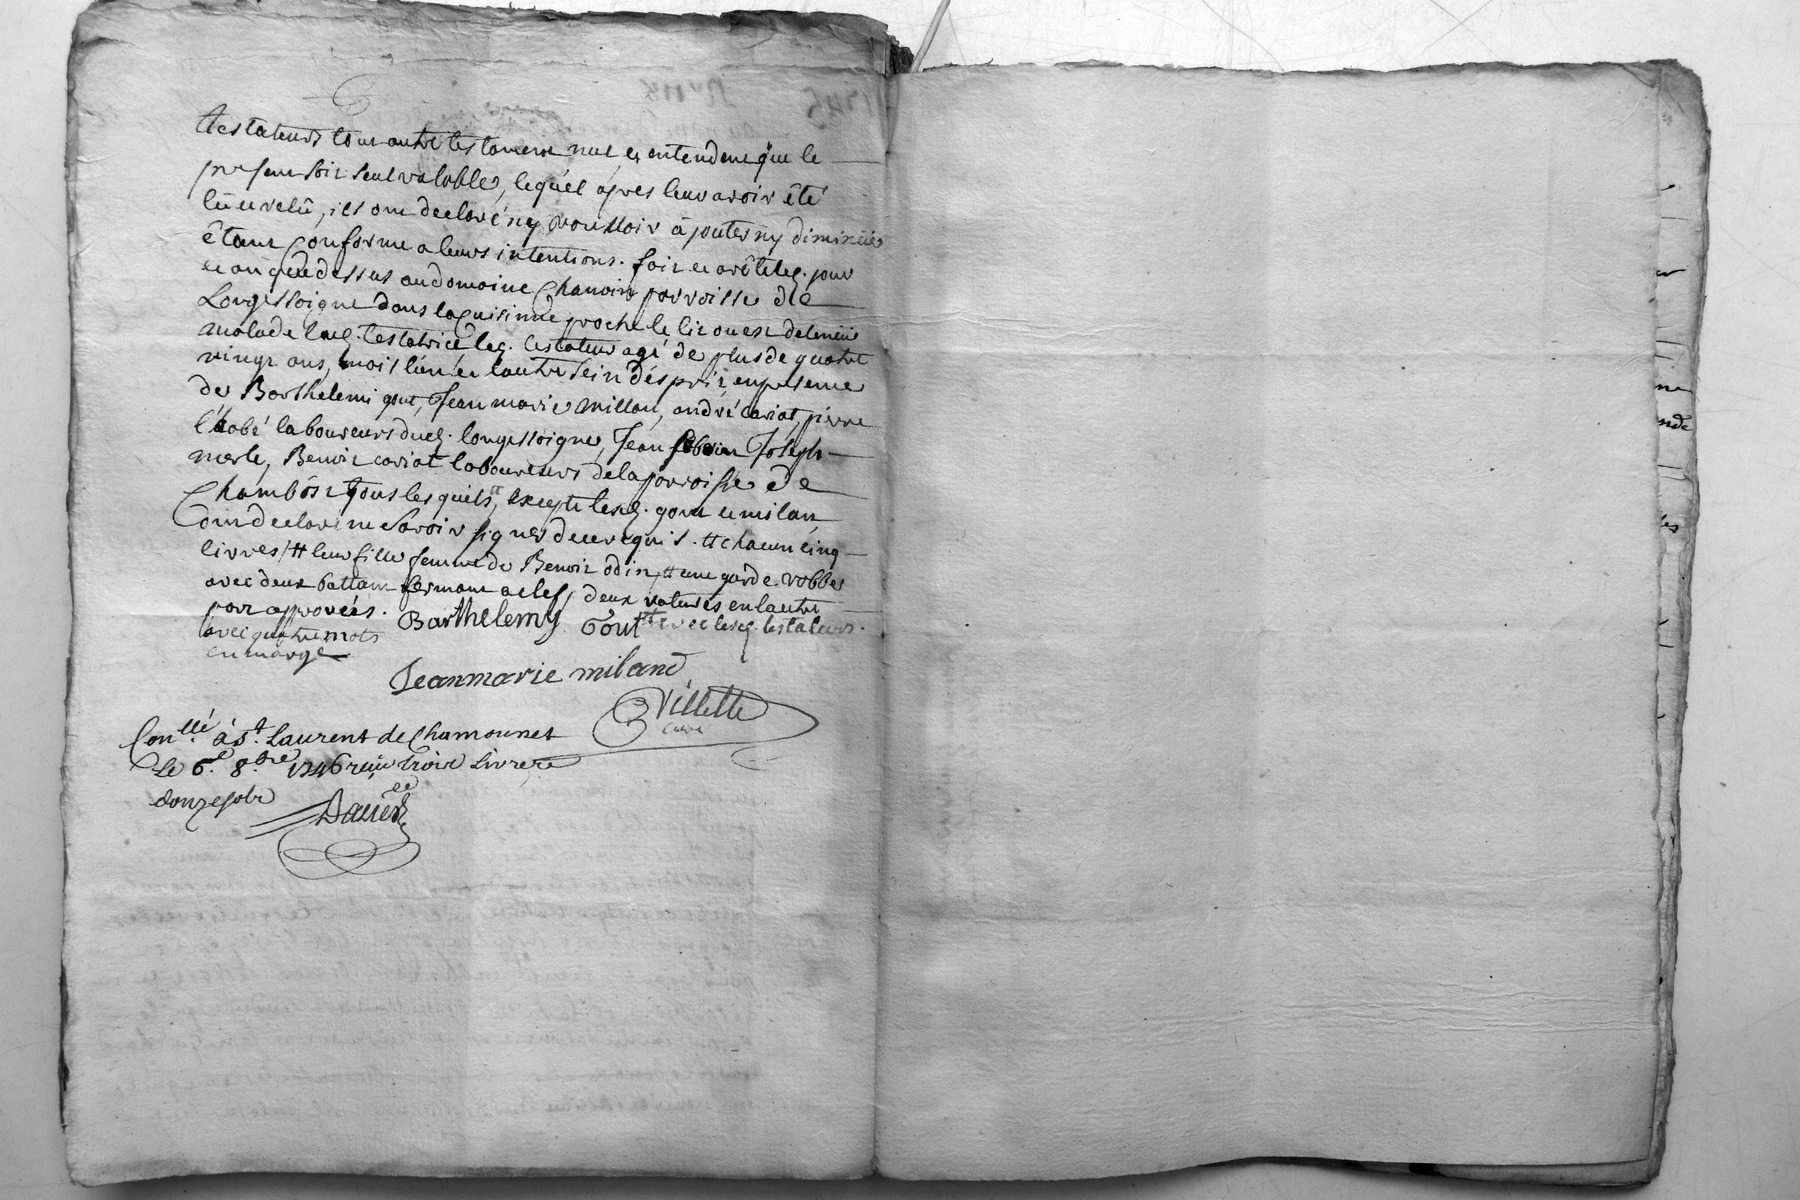 testateurs tout autre testament nul et entendent que le
present soit seul valable, lequel âpres leur avoir êté
lû et relû, ils ont declaré ny vouloir âjouter ny diminüer
êtant Conforme a leurs intentions. fait et arêté led. jour
et an que dessus au domaine Chanoin parroisse de
Longessaigne dans la Cuisinne proche le lit ou est detenüe
malade lad. testatrice led. testateur agé de plus de quatre
vingt ans, mais l'un et l'autre sein d'ésprit en presence
de Barthelemi gout, Jean marie millan, andré cariat, pierre
l'habé laboureurs dud. longessaigne, Jean Joseph
merle, Benoit cariat laboureurs de la parroisse de
Chambôst tous lesquels, excepte lesd. gout et milan
ont declaré ne Savoir signer de ce requis. # chacun cinq
livres / # leur fille femme de Benoit odin, # une garde robbe
avec deux battant fermant a clef, deux ratures en l'autre
part approvées. # avec lesd. testateurs.
avec quatre mots
en marge
Barthelemy Gout
Jeanmarie miland
Villette
Curé
Con.llé à st. Laurent de Chamounet
Le 6.e 8.bre 1746 reçu Trois Livres
donze sols